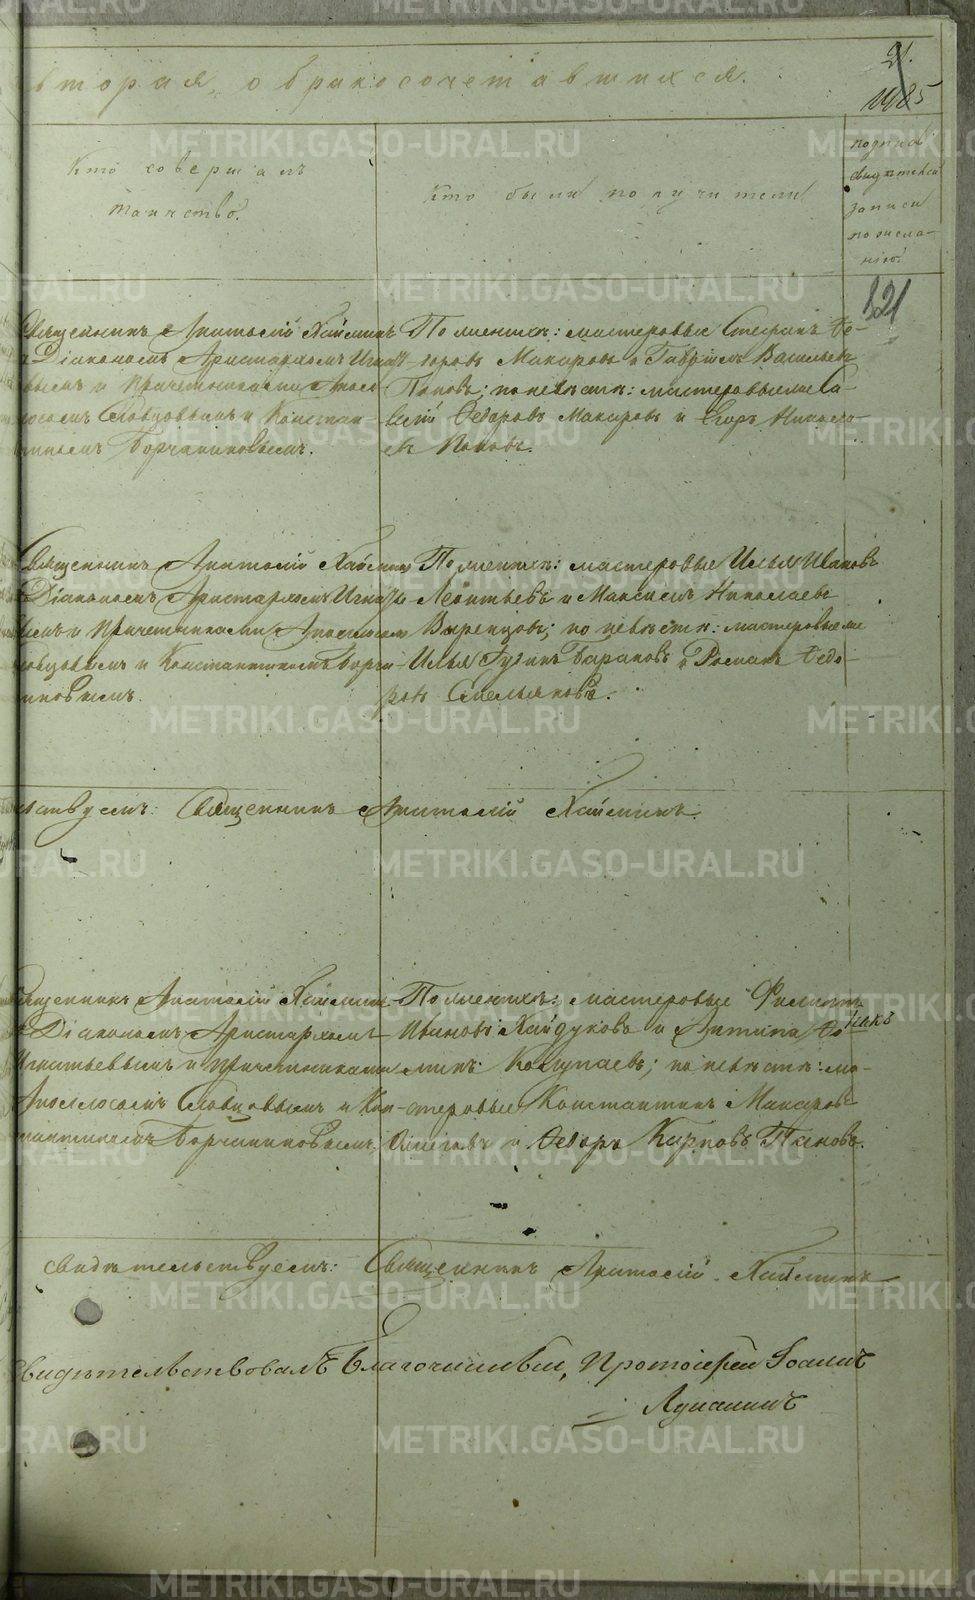 вторая, о бракосочетавшихся.
21.
Кто совершалъ таинство.
Кто были поручители
подпись свидѣтелей записи по желанiю.
321
Священникъ Анатолій Хайминъ
Діакономъ Аристархомъ Игнать-
евымъ и причетниками Апол-
лосомъ Словцовымъ и Констан-
тиномъ Борчаниновымъ.
По женихѣ: мастеровые Стефанъ Ѳе-
доровъ Макаровъ и Гавріилъ Васильевъ
Поповъ; по невѣстѣ: мастеровые
Ѳедоровъ Макаровъ и Егоръ Никола-
евъ Поповъ.
Священникъ Анатолій Хайминъ
Діакономъ Аристархомъ Игнатье-
вымъ и Причетниками Аполлосомъ
Словцовымъ и Константиномъ Борча-
ниновымъ.
По женихѣ: мастеровые Илья Ивановъ
Леонтьевъ и Максимъ Николаевъ
по невѣстѣ: мастеровые
Илья и Романъ Ѳедо-
ровъ Емельяновъ.
Священникъ Анатолій Хайминъ.
Священникъ Анатолій Хайминъ
Діакономъ Аристархомъ
Игнатьевымъ и причетниками
Аполлосомъ Словцовымъ и Кон-
стантиномъ Борчаниновымъ.
По женихѣ: мастеровые Филиппъ
Ивановъ Хайдуковъ и Антипа
по невѣстѣ: ма-
стеровые Константинъ Макаровъ
и Ѳедоръ Карповъ Пановъ.
свидѣтельствуемъ: Священникъ Анатолій Хайминъ
Свидѣтельствовалъ Благочинный, Протоіерей Іоаннъ